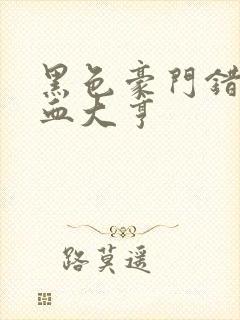 黑色豪門錯
血大亨
路莫遥